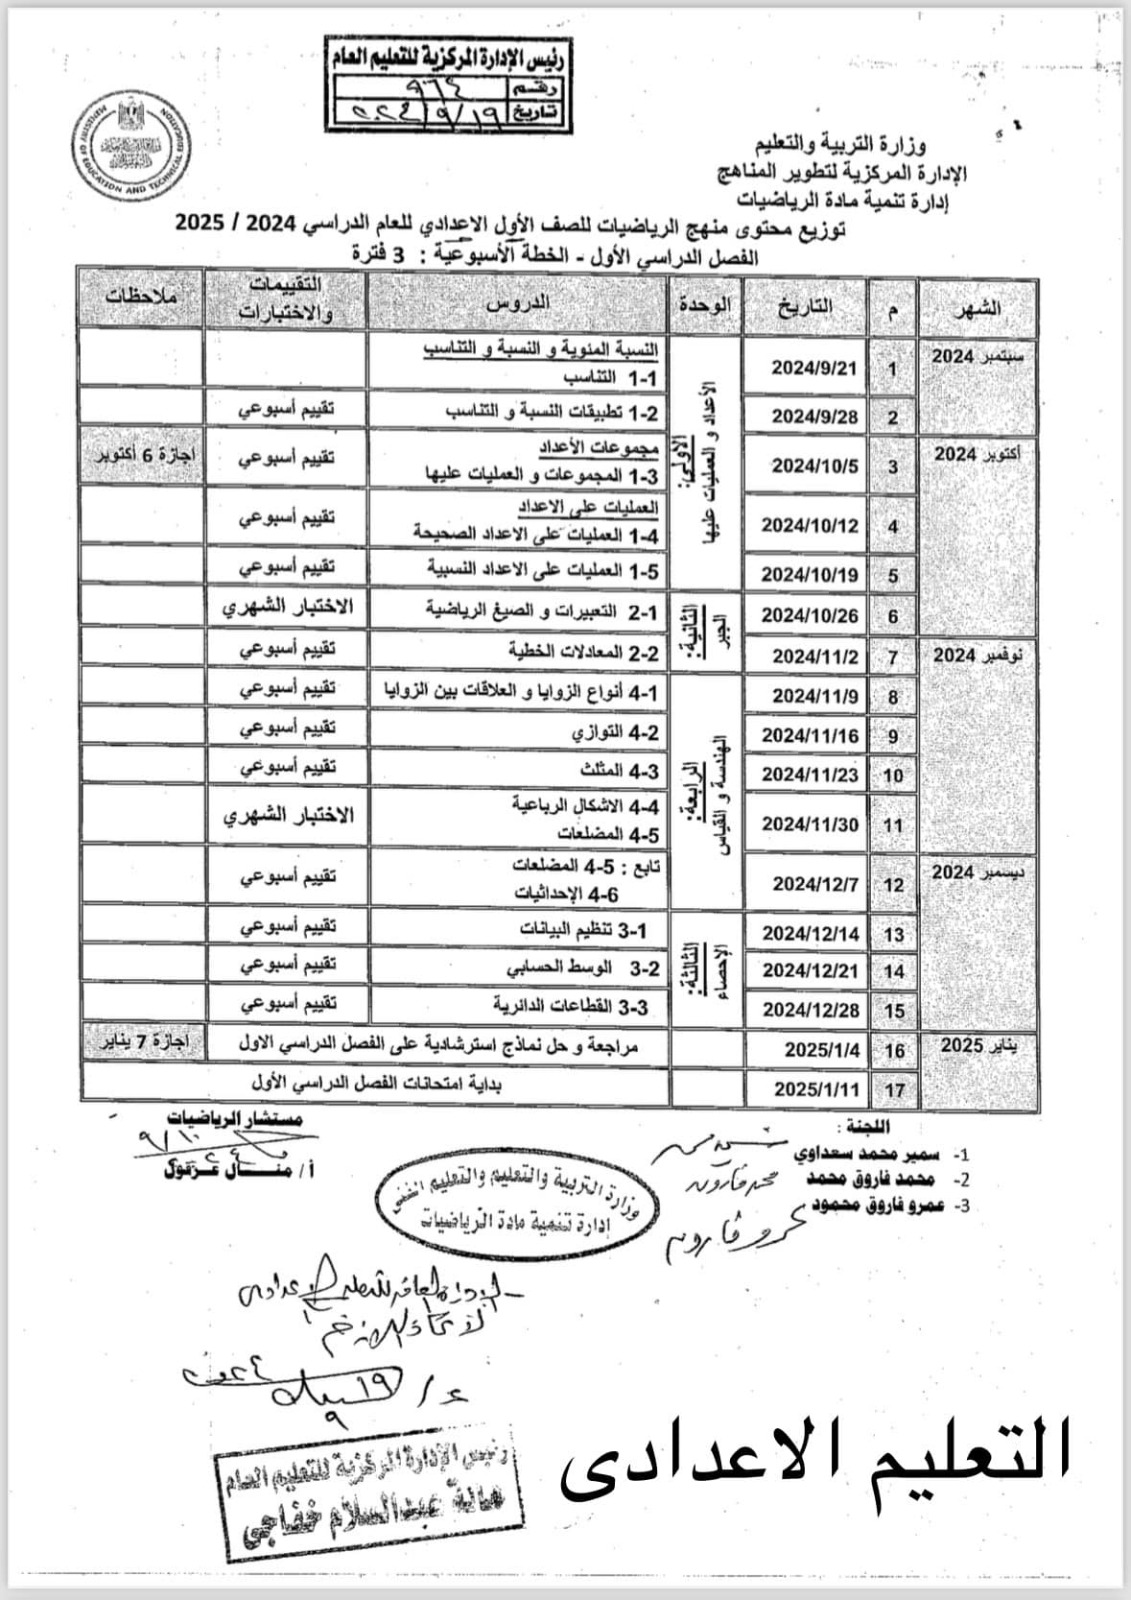 رئيس الإدارة المركزية للتعليم العام
رقم ٩٦٤
تاريخ ٢٠٢٤/٩/١٩
MINISTRY OF EDUCATION AND TECHNICAL EDUCATION
وزارة التربية والتعليم
الإدارة المركزية لتطوير المناهج
إدارة تنمية مادة الرياضيات
توزيع محتوى منهج الرياضيات للصف الأول الاعدادي للعام الدراسي 2024 / 2025
الفصل الدراسي الأول - الخطة الأسبوعية : 3 فترة
الشهر م التاريخ الوحدة الدروس التقييمات والاختبارات ملاحظات
سبتمبر 2024 1 2024/9/21 الأولى: الأعداد و العمليات عليها النسبة المئوية و النسبة و التناسب
1-1 التناسب
2 2024/9/28 1-2 تطبيقات النسبة و التناسب تقييم أسبوعي
أكتوبر 2024 3 2024/10/5 مجموعات الأعداد
1-3 المجموعات و العمليات عليها تقييم أسبوعي اجازة 6 أكتوبر
4 2024/10/12 العمليات على الاعداد
1-4 العمليات على الاعداد الصحيحة تقييم أسبوعي
5 2024/10/19 1-5 العمليات على الاعداد النسبية تقييم أسبوعي
6 2024/10/26 الثانية: الجبر 2-1 التعبيرات و الصيغ الرياضية الاختبار الشهري
نوفمبر 2024 7 2024/11/2 2-2 المعادلات الخطية تقييم أسبوعي
8 2024/11/9 الرابعة: الهندسة و القياس 4-1 أنواع الزوايا و العلاقات بين الزوايا تقييم أسبوعي
9 2024/11/16 4-2 التوازي تقييم أسبوعي
10 2024/11/23 4-3 المثلث تقييم أسبوعي
11 2024/11/30 4-4 الاشكال الرباعية
4-5 المضلعات الاختبار الشهري
ديسمبر 2024 12 2024/12/7 تابع : 4-5 المضلعات
4-6 الإحداثيات تقييم أسبوعي
13 2024/12/14 الثالثة: الإحصاء 3-1 تنظيم البيانات تقييم أسبوعي
14 2024/12/21 3-2 الوسط الحسابي تقييم أسبوعي
15 2024/12/28 3-3 القطاعات الدائرية تقييم أسبوعي
يناير 2025 16 2025/1/4 مراجعة و حل نماذج استرشادية على الفصل الدراسي الاول اجازة 7 يناير
17 2025/1/11 بداية امتحانات الفصل الدراسي الأول
اللجنة :
1- سمير محمد سعداوي
2- محمد فاروق محمد محمد فاروق
3- عمرو فاروق محمود عمرو فاروق
مستشار الرياضيات
أ / منال عزقول
وزارة التربية والتعليم والتعليم الفني
إدارة تنمية مادة الرياضيات
الإدارة العامة للتعليم الإعدادى
رئيس الإدارة المركزية للتعليم العام
هالة عبدالسلام خفاجي
التعليم الاعدادى